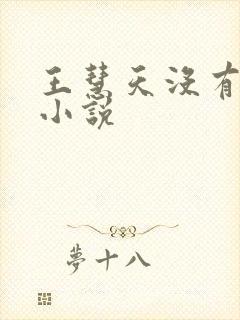 王慧天没有
小说
夢十八